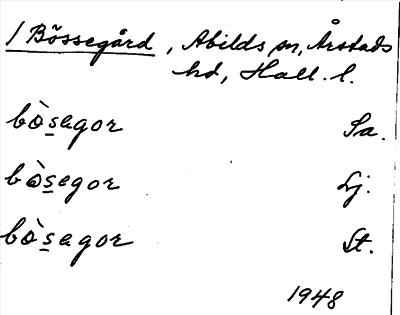 / Bössegård, Abilds sn, Årstads
hd, Hall. l.
bò̀s̲agor Sa.
bò̀s̲egor Lj.
bò̀s̲agor St.
1948